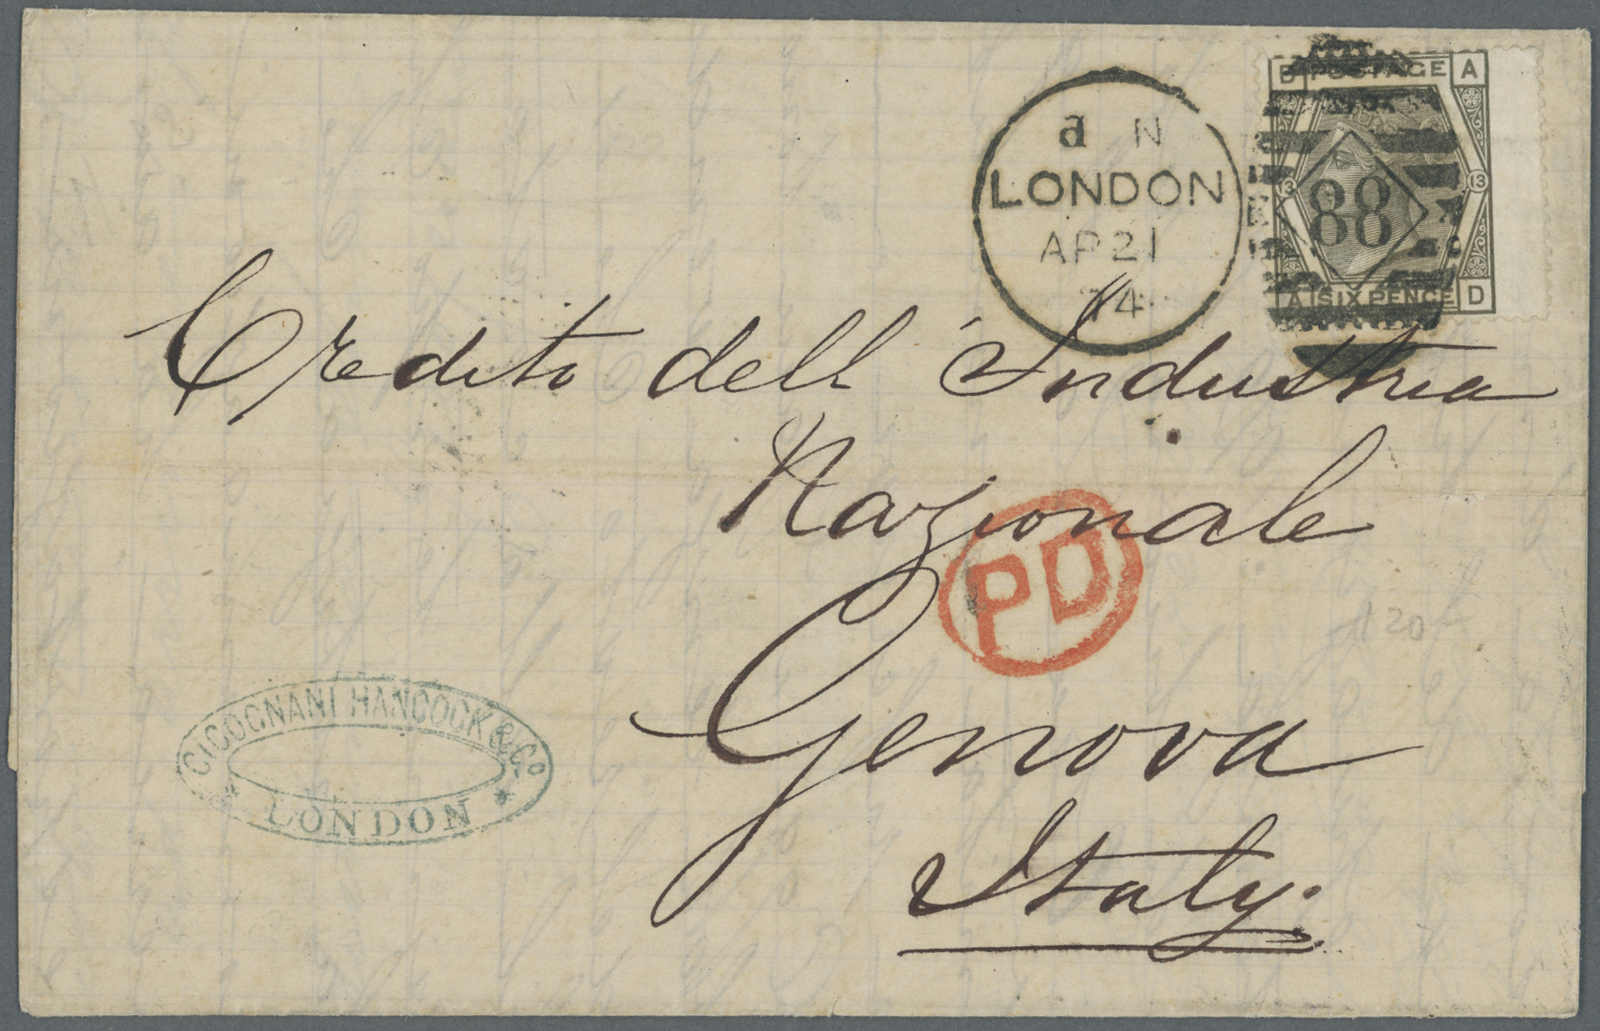 a N
LONDON
AP 21
74
D POSTAGE A
13 88 13
A SIX PENCE D
Credito dell' Industria
Nazionale
PD
Genova
Italy.
CICOGNANI HANCOCK & Co
* LONDON *
120